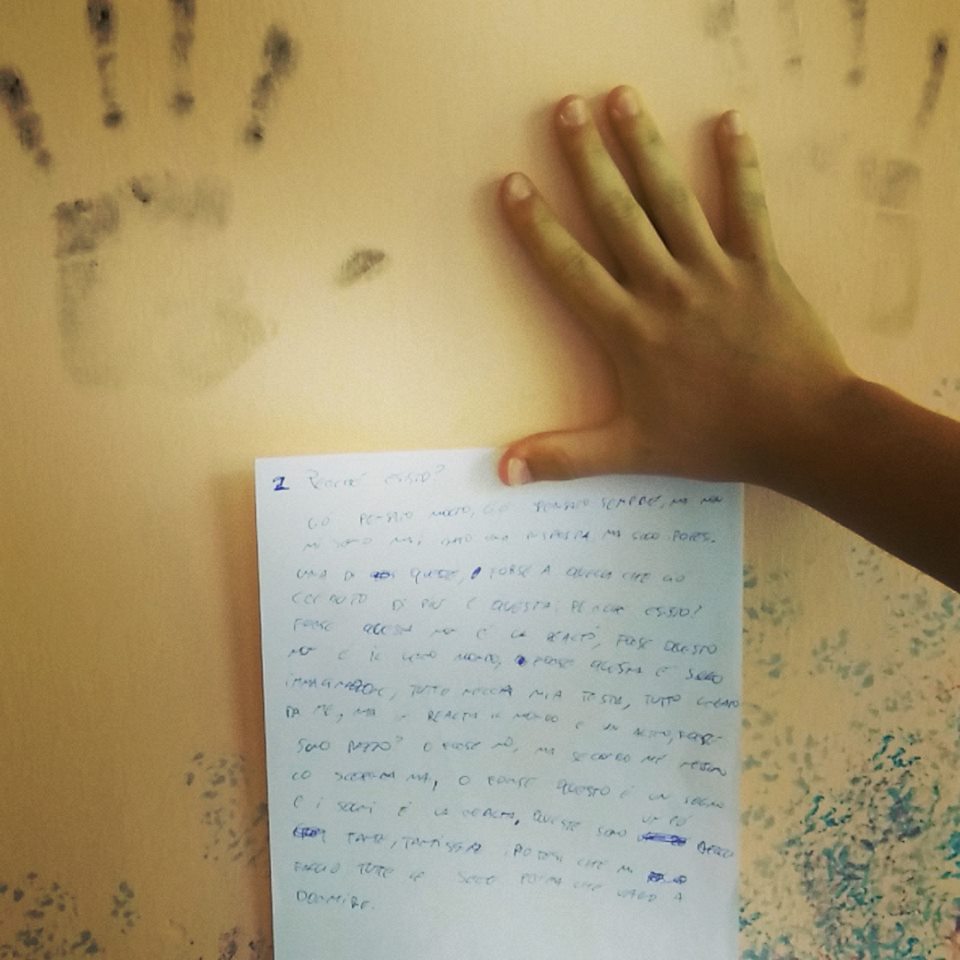 1 Perché esisto?
CI HO PENSATO MOLTO, CI HO PENSATO SEMPRE, MA NON
MI SONO MAI DATO UNA RISPOSTA MA SOLO IPOTESI.
UNA DI QUESTE, FORSE A QUELLA CHE HO
CREDUTO DI PIÙ È QUESTA: PERCHÉ ESISTO?
FORSE QUESTA NON È LA REALTÀ, FORSE QUESTO
NON È IL VERO MONDO, FORSE QUESTA È SOLO
IMMAGINAZIONE, TUTTO NELLA MIA TESTA, TUTTO CREATO
DA ME, MA IN REALTÀ IL MONDO È UN ALTRO, FORSE
SONO PAZZO? O FORSE NO, MA SECONDO ME NESSUNO
LO SCOPRIRÀ MAI, O FORSE QUESTO È UN SOGNO
E I SOGNI È LA REALTÀ, QUESTE SONO UN PÒ DELLE
TANTE, TANTISSIME IPOTESI CHE MI
FACCIO TUTTE LE SERE PRIMA CHE VADO A
DORMIRE.